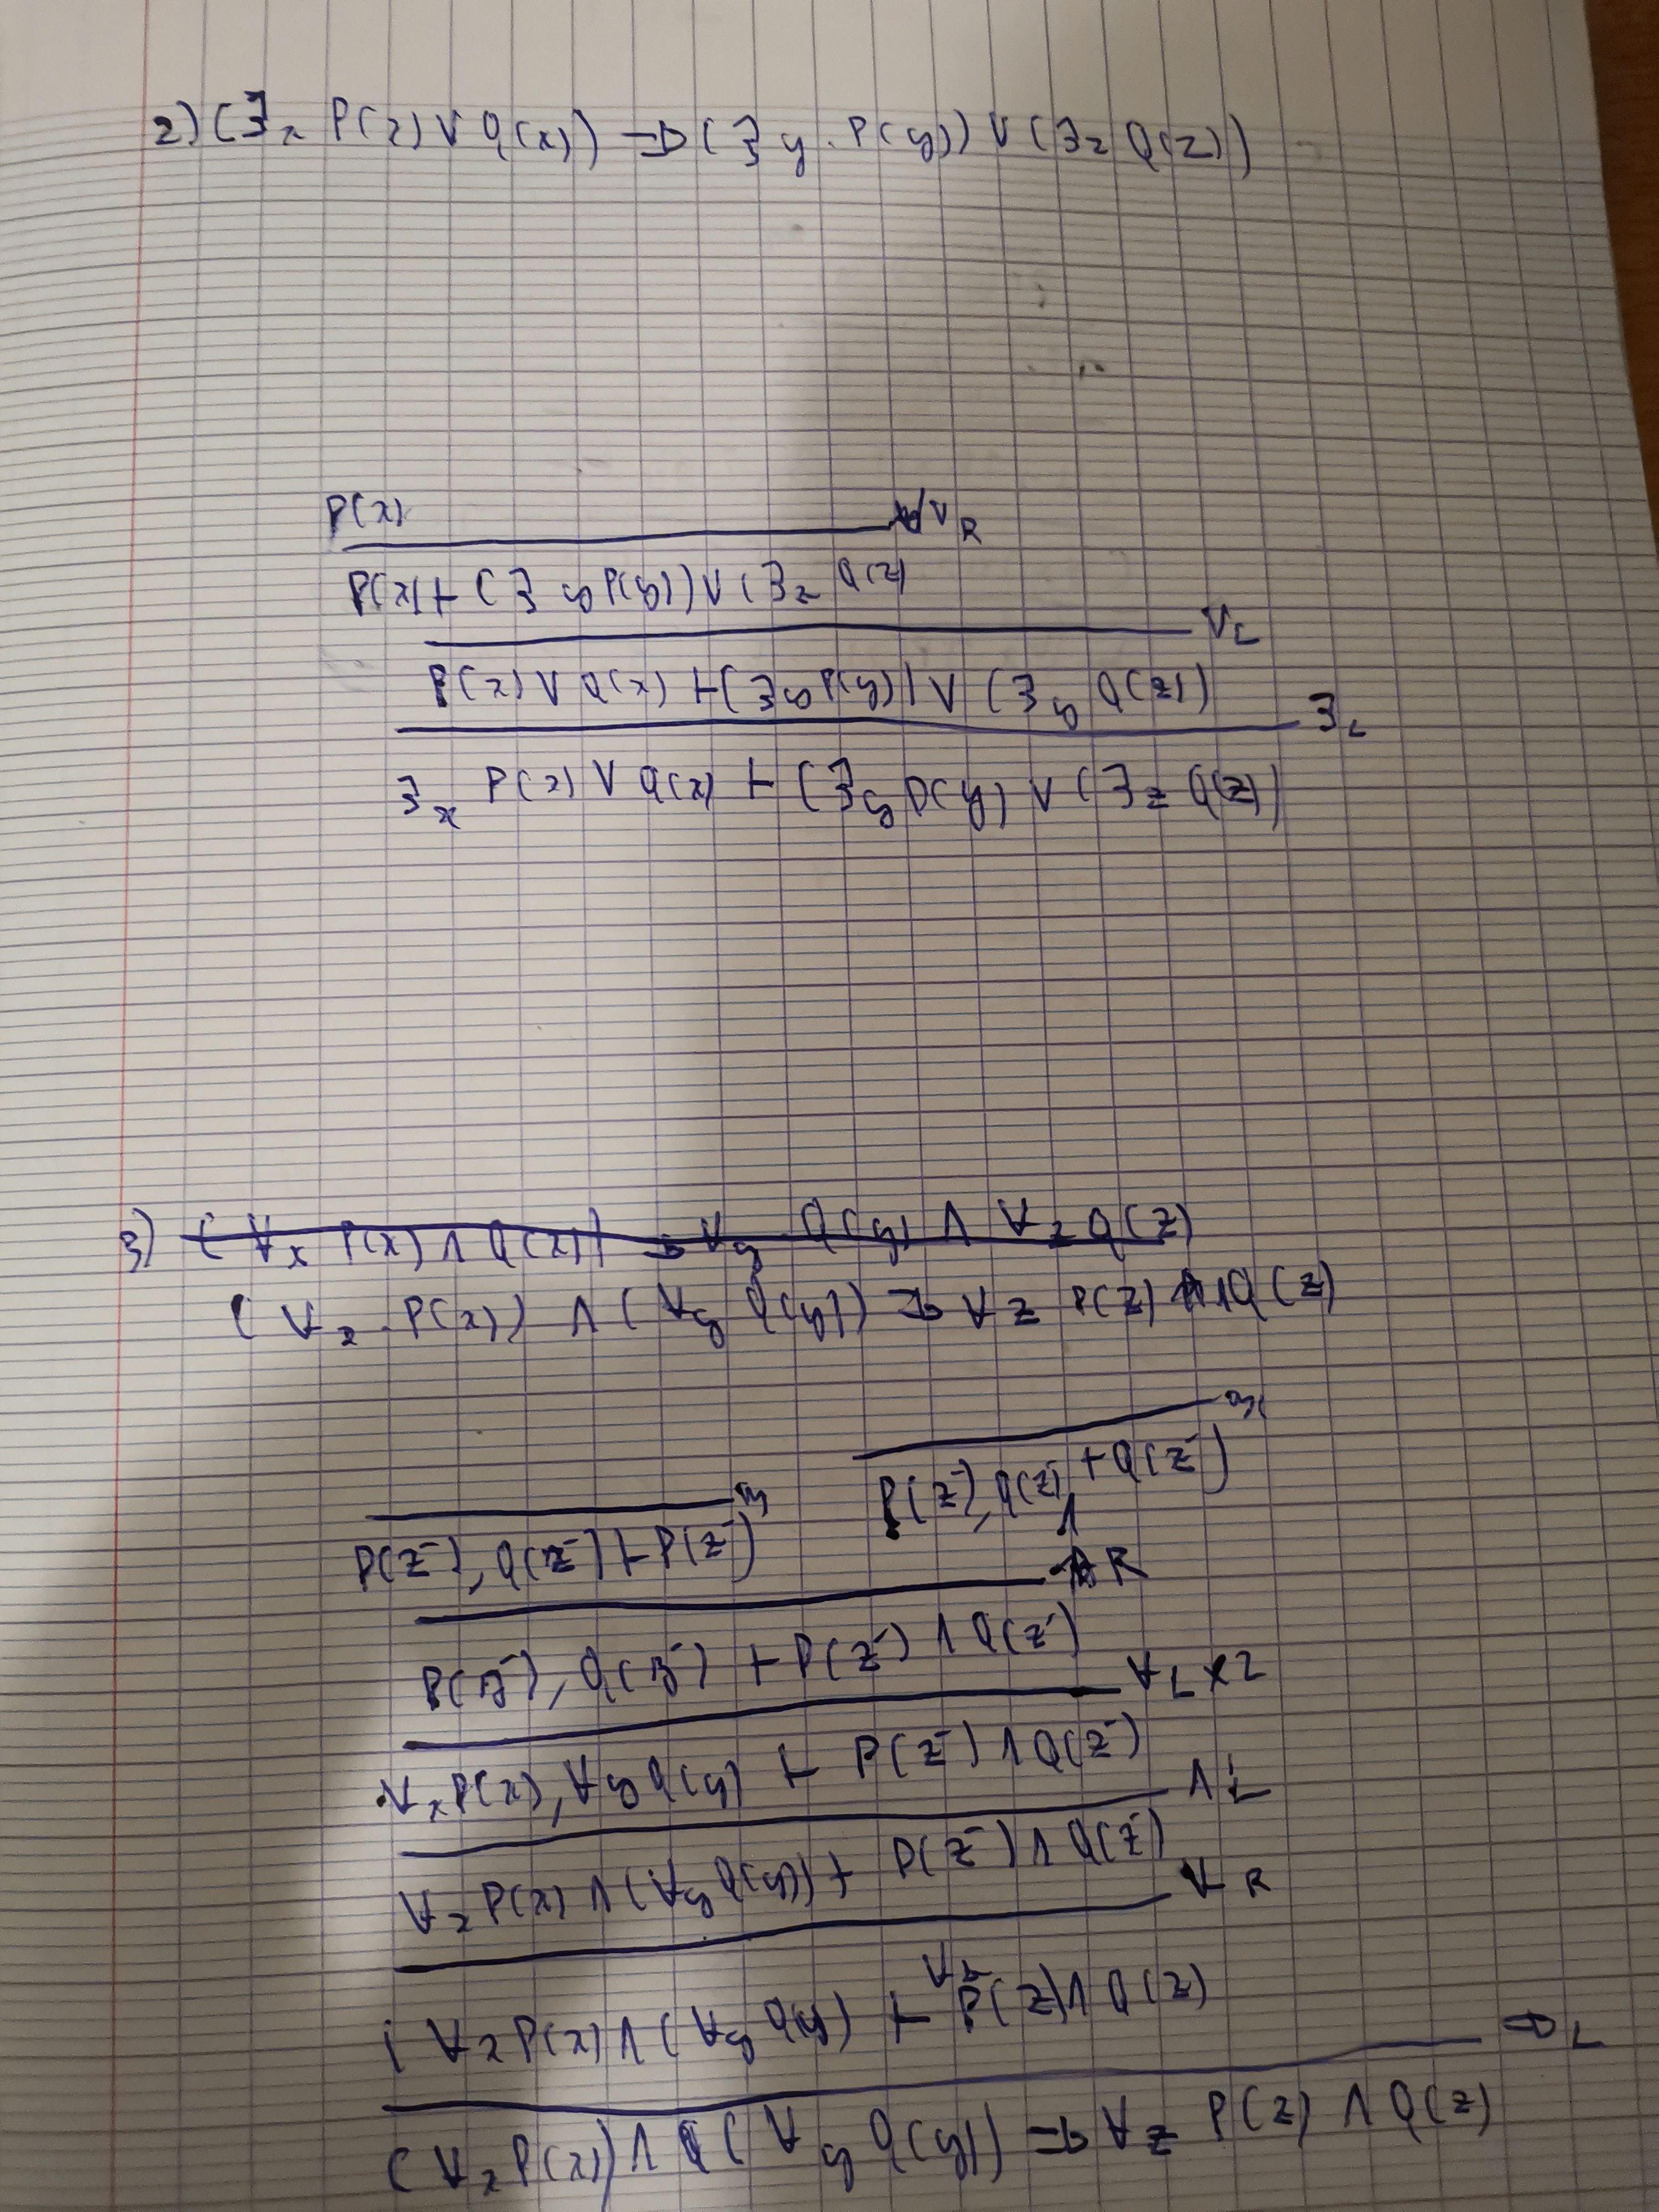 2) (∃x P(x) ∨ Q(x)) ⇒ (∃y. P(y)) ∨ (∃z Q(z))
P(x)
∨R
P(x) ⊢ (∃y P(y)) ∨ (∃z Q(z)
∨L
P(x) ∨ Q(x) ⊢ (∃y P(y)) ∨ (∃y Q(z))
∃L
∃x P(x) ∨ Q(x) ⊢ (∃y P(y) ∨ (∃z Q(z))
3) (∀x P(x) ∧ Q(x)) ⇒ ∀y Q(y) ∧ ∀z Q(z)
(∀x. P(x)) ∧ (∀y Q(y)) ⇒ ∀z P(z) ∧ Q(z)
P(z⁻), Q(z) ⊢ Q(z⁻)
P(z⁻), Q(z⁻) ⊢ P(z⁻)
∧R
P(z⁻), Q(z⁻) ⊢ P(z⁻) ∧ Q(z⁻)
∀L x2
∀x P(x), ∀y Q(y) ⊢ P(z⁻) ∧ Q(z⁻)
∧L
∀x P(x) ∧ (∀y Q(y)) ⊢ P(z⁻) ∧ Q(z⁻)
∀R
(∀x P(x) ∧ (∀y Q(y) ⊢ ∀z P(z) ∧ Q(z)
⇒L
(∀x P(x)) ∧ (∀y Q(y)) ⇒ ∀z P(z) ∧ Q(z)